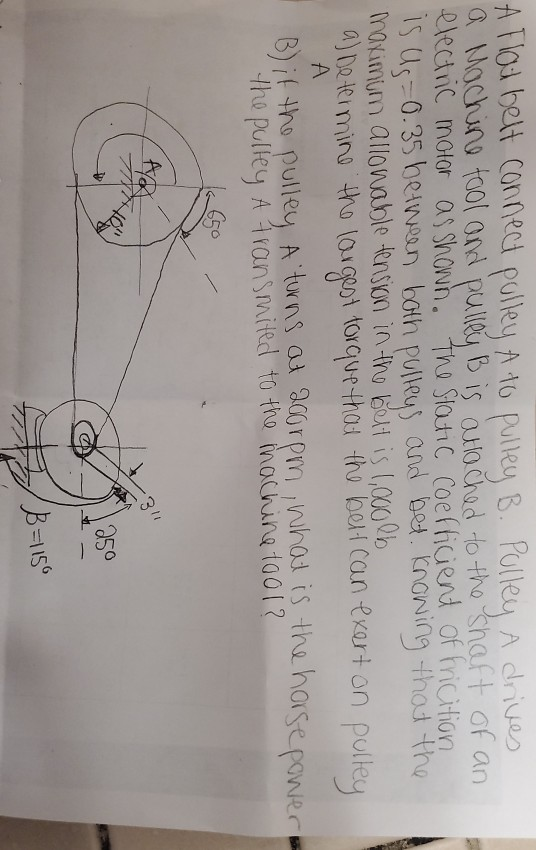 A Flat belt connect pulley A to pulley B. Pulley A drives
a Machine tool and pulley B is attached to the shaft of an
electric motor as shown. The static coefficient of friction
is us=0.35 between both pulleys and belt. Knowing that the
maximum allowable tension in the belt is 1,000 lb
a) Determine the largest torque that the belt can exert on pulley
A
B) if the pulley A turns at 200 rpm, what is the horse power
the pulley A transmited to the machine tool?
65°
A
3"
25°
B=115°